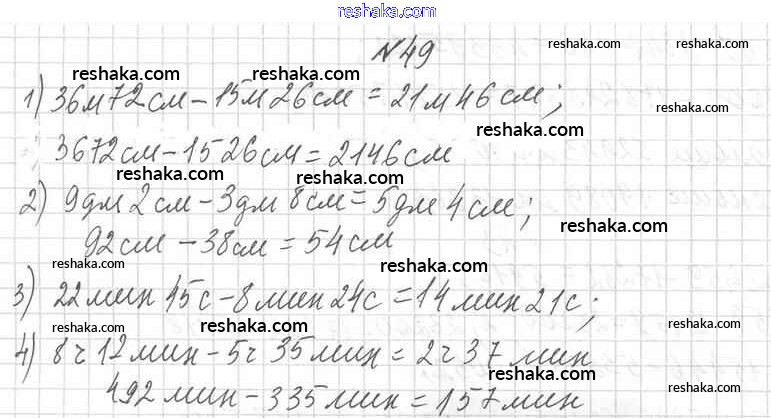 reshaka.com
№49
reshaka.com
reshaka.com reshaka.com
1) 36м72см-15м26см=21м46см;
reshaka.com reshaka.com
3672см-1526см=2146см
reshaka.com reshaka.com
2) 9дм2см-3дм8см=5дм4см;
reshaka.com
92см-38см=54см
reshaka.com reshaka.com
3) 22мин45с-8мин24с=14мин21с;
reshaka.com reshaka.com
4) 8ч12мин-5ч35мин=2ч37мин
reshaka.com reshaka.com
492мин-335мин=157мин